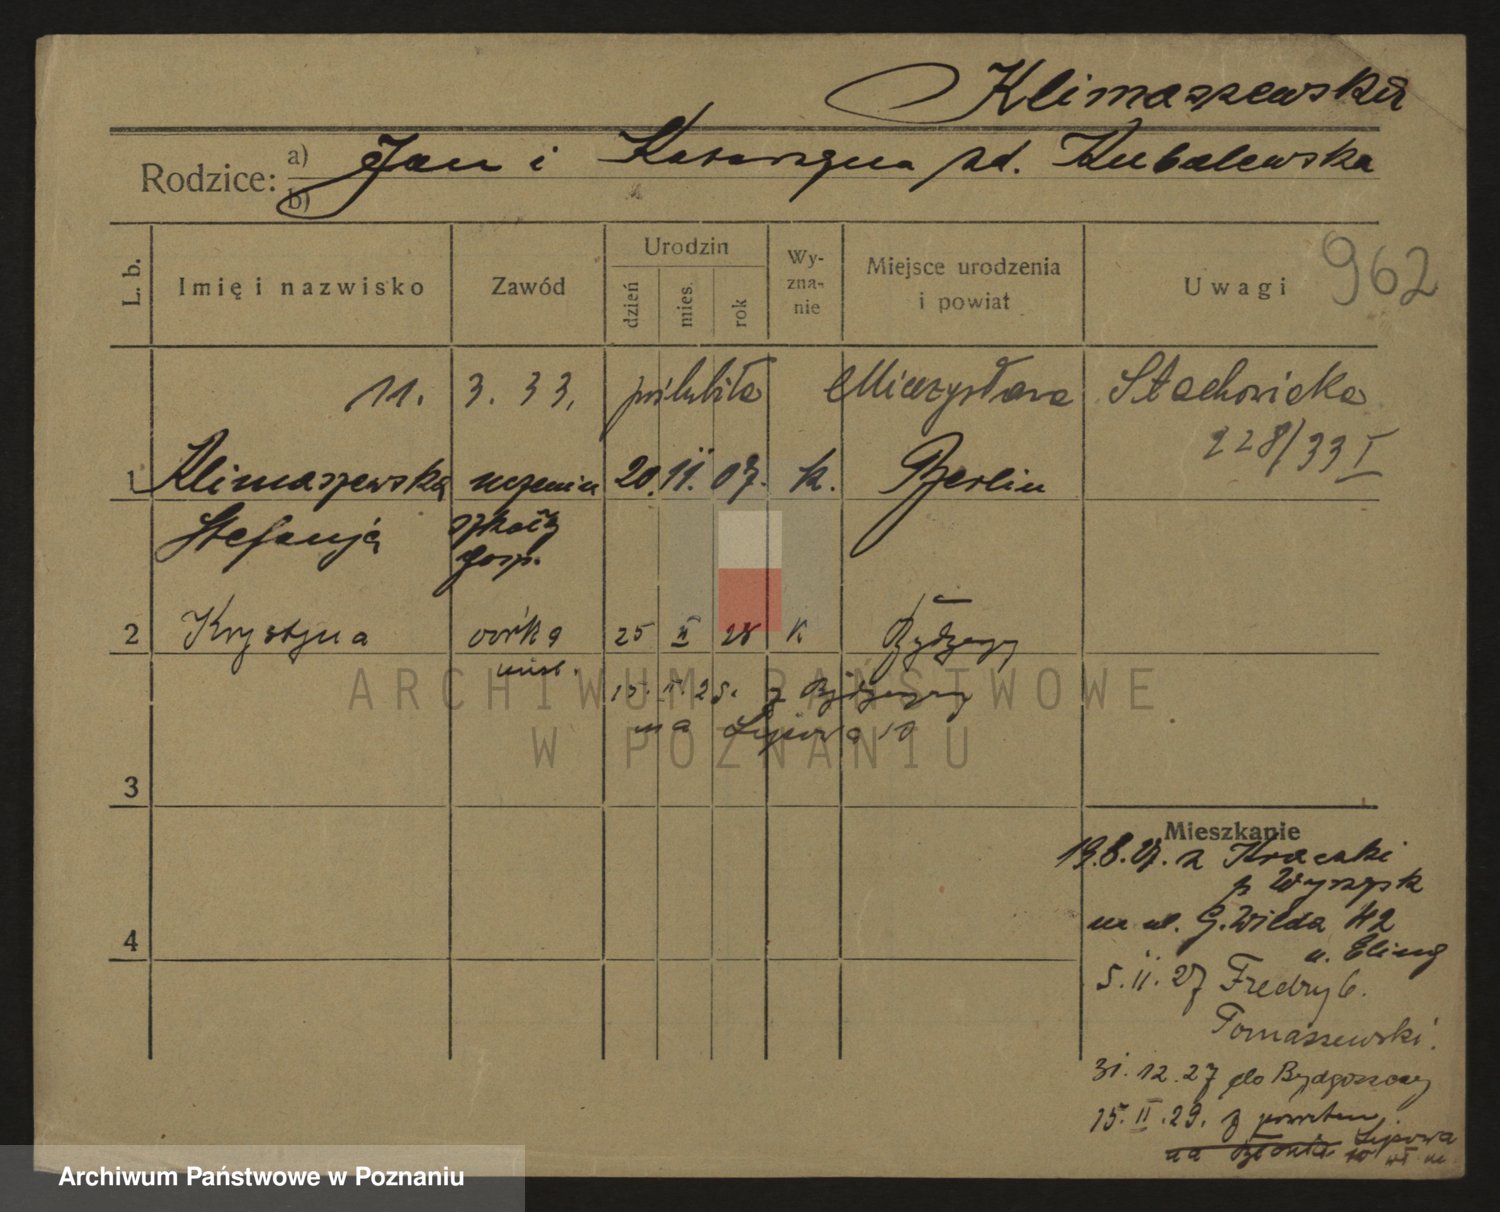 Klimaszewska
Rodzice: a) Jan i Katarzyna zd. Kubalewska
b)
962
L. b. Imię i nazwisko Zawód Urodzin dzień mies. rok Wy-zna-nie Miejsce urodzenia i powiat Uwagi
11. 3. 33. poślubiła Mieczysława Stachowicka
228/33 I
1 Klimaszewska uczenica 20. 11. 07. k. Berlin
Stefanja szkoły
gosp.
2 Krystyna córka 25 II 28 k Bydgoszcz
nieśl.
15. II. 28. z Bydgoszczy
na Lipowa 10
3
Mieszkanie
19.8.27. z
p Wyrzysk
na ul. G. Wilda 42
u.
4
5.11.27 Fredry 6.
Tomaszewski.
31.12.27 do Bydgoszczy
15. II. 29. z powrotem
na Lipowa
10
ARCHIWUM PAŃSTWOWE
W POZNANIU
Archiwum Państwowe w Poznaniu